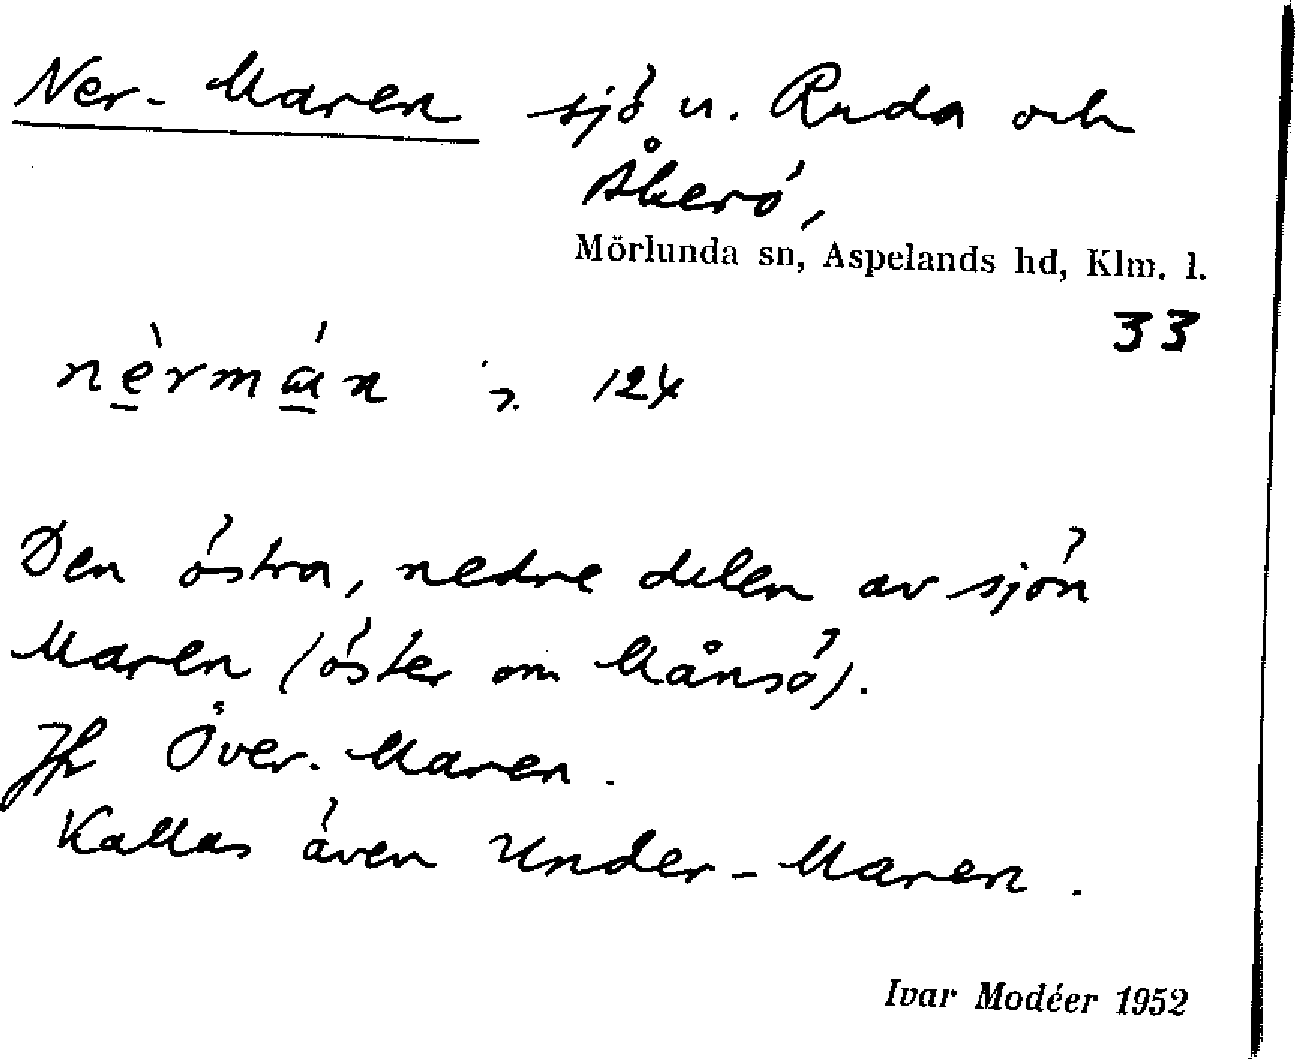 Ner-Maren sjö u. Ruda och
Åkerö,
Mörlunda sn, Aspelands hd, Klm. l.
33
124
Den östra, nedre delen av sjön
Maren (öster om Månsö).
Jfr Över-Maren.
Kallas även Under-Maren.
Ivar Modéer 1952